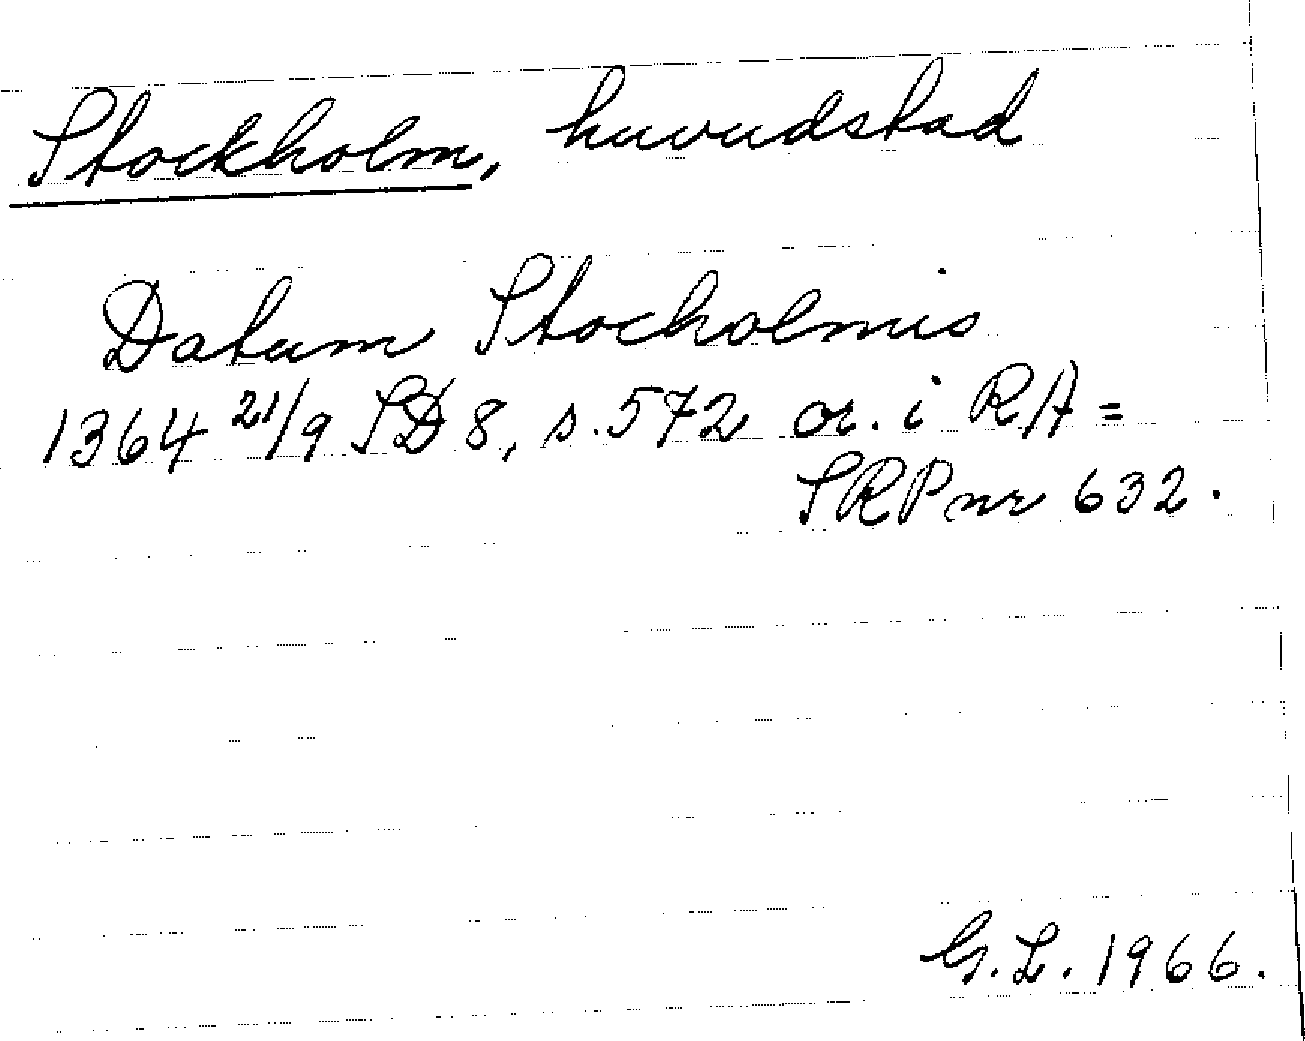 Stockholm, huvudstad
Datum Stocholmis
1364 21/9 SD 8, s. 572 or. i RA =
SRP nr 632.
G. L. 1966.